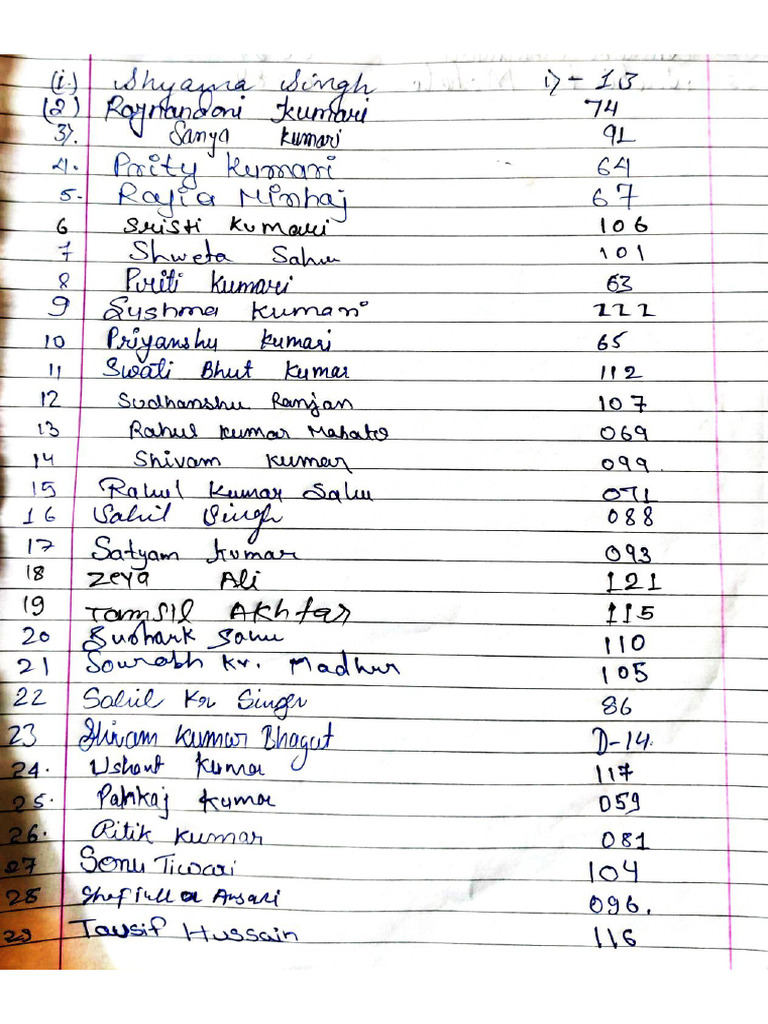 (i.) Shyama Singh i) - 13
(2) Rajnandani Kumari 74
3). Sanya Kumari 91
4. Prity Kumari 64
5. Rajia Minhaj 67
6 Sristi Kumari 106
7 Shweta Sahu 101
8 Priti Kumari 63
9 Sushma Kumari 222
10 Priyanshu Kumari 65
11 Swati Bhut Kumar 112
12 Sudhanshu Ranjan 107
13 Rahul Kumar Mahato 069
14 Shivam Kumar 099.
15 Rahul Kumar Sahu 071
16 Sahil Singh 088
17 Satyam Kumar 093
18 Zeya Ali 121
19 Tamsil Akhtar 115
20 Sahu 110
21 Sourabh Kr. Madhur 105
22 Sahil Kr Singh 86
23 Shivam Kumar Bhagat D-14.
24. Ushant Kumar 117
25. Pankaj Kumar 059
26. Ritik Kumar 081
27 Sonu Tiwari 104
28 Ansari 096.
29 Tausif Hussain 116